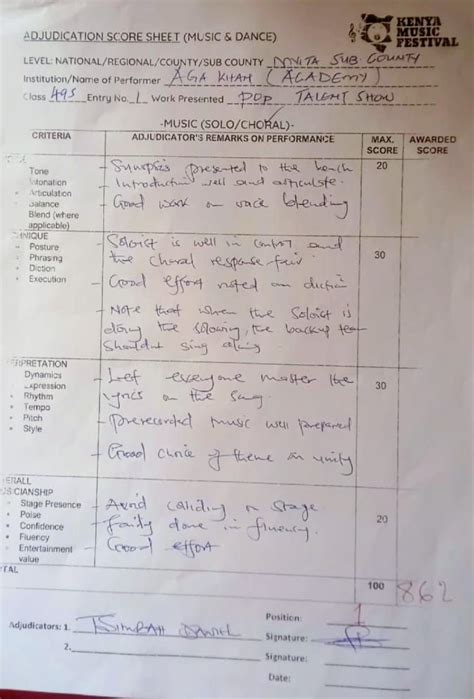 KENYA
MUSIC
FESTIVAL
ADJUDICATION SCORE SHEET (MUSIC & DANCE)
LEVEL: NATIONAL/REGIONAL/COUNTY/SUB COUNTY MVITA SUB COUNTY
Institution/Name of Performer AGA KHAN (ACADEMY)
Class 495 Entry No. 1 Work Presented POP TALENT SHOW
-MUSIC (SOLO/CHORAL)-
CRITERIA ADJUDICATOR'S REMARKS ON PERFORMANCE MAX. SCORE AWARDED SCORE
Tone
Intonation
Articulation
Balance
Blend (where
applicable)
- Synopsis presented to the bench
- Introduction well and articulate.
- Good work on voice blending
20
HNIQUE
- Posture
- Phrasing
- Diction
- Execution
- Soloist is well in control and
the choral response fair.
- Good effort noted on diction
- Note that when the Soloist is
doing the soloing, the backup team
shouldn't sing along
30
ERPRETATION
Dynamics
Expression
Rhythm
Tempo
Pitch
Style
- Let everyone master the
lyrics on the song
- Prerecorded music well prepared
- Good choice of theme on unity
30
ERALL
ICIANSHIP
Stage Presence
Poise
Confidence
Fluency
Entertainment
value
- Avoid colliding on stage
- Fairly done in fluency.
- Good effort
20
TAL 100 862
Adjudicators: 1. DANIEL
Position: 1
Signature:
2.
Signature:
Date: